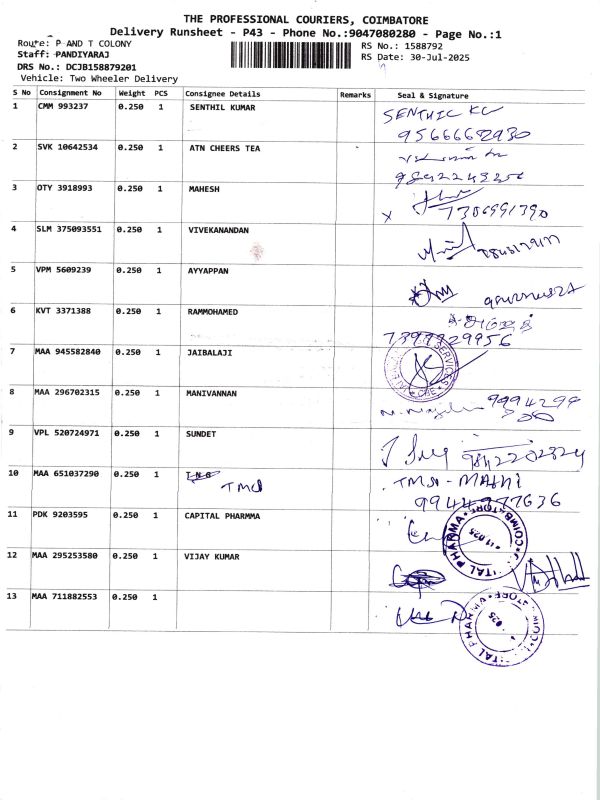 THE PROFESSIONAL COURIERS, COIMBATORE
Delivery Runsheet - P43 - Phone No.:9047080280 - Page No.:1
Route: P AND T COLONY
RS No.: 1588792
Staff: PANDIYARAJ
RS Date: 30-Jul-2025
DRS No.: DCJB158879201
Vehicle: Two Wheeler Delivery
S No Consignment No Weight PCS Consignee Details Remarks Seal & Signature
1 CMM 993237 0.250 1 SENTHIL KUMAR
9566662930
2 SVK 10642534 0.250 1 ATN CHEERS TEA
3 OTY 3918993 0.250 1 MAHESH
7306991390
4 SLM 375093551 0.250 1 VIVEKANANDAN
5 VPM 5609239 0.250 1 AYYAPPAN
6 KVT 3371388 0.250 1 RAMMOHAMED
7 MAA 945582840 0.250 1 JAIBALAJI
SERVICES
8 MAA 296702315 0.250 1 MANIVANNAN
9 VPL 520724971 0.250 1 SUNDET
9842202324
10 MAA 651037290 0.250 1
11 PDK 9203595 0.250 1 CAPITAL PHARMMA
PHARMA COIMBATORE
12 MAA 295253580 0.250 1 VIJAY KUMAR
13 MAA 711882553 0.250 1
PHARMA